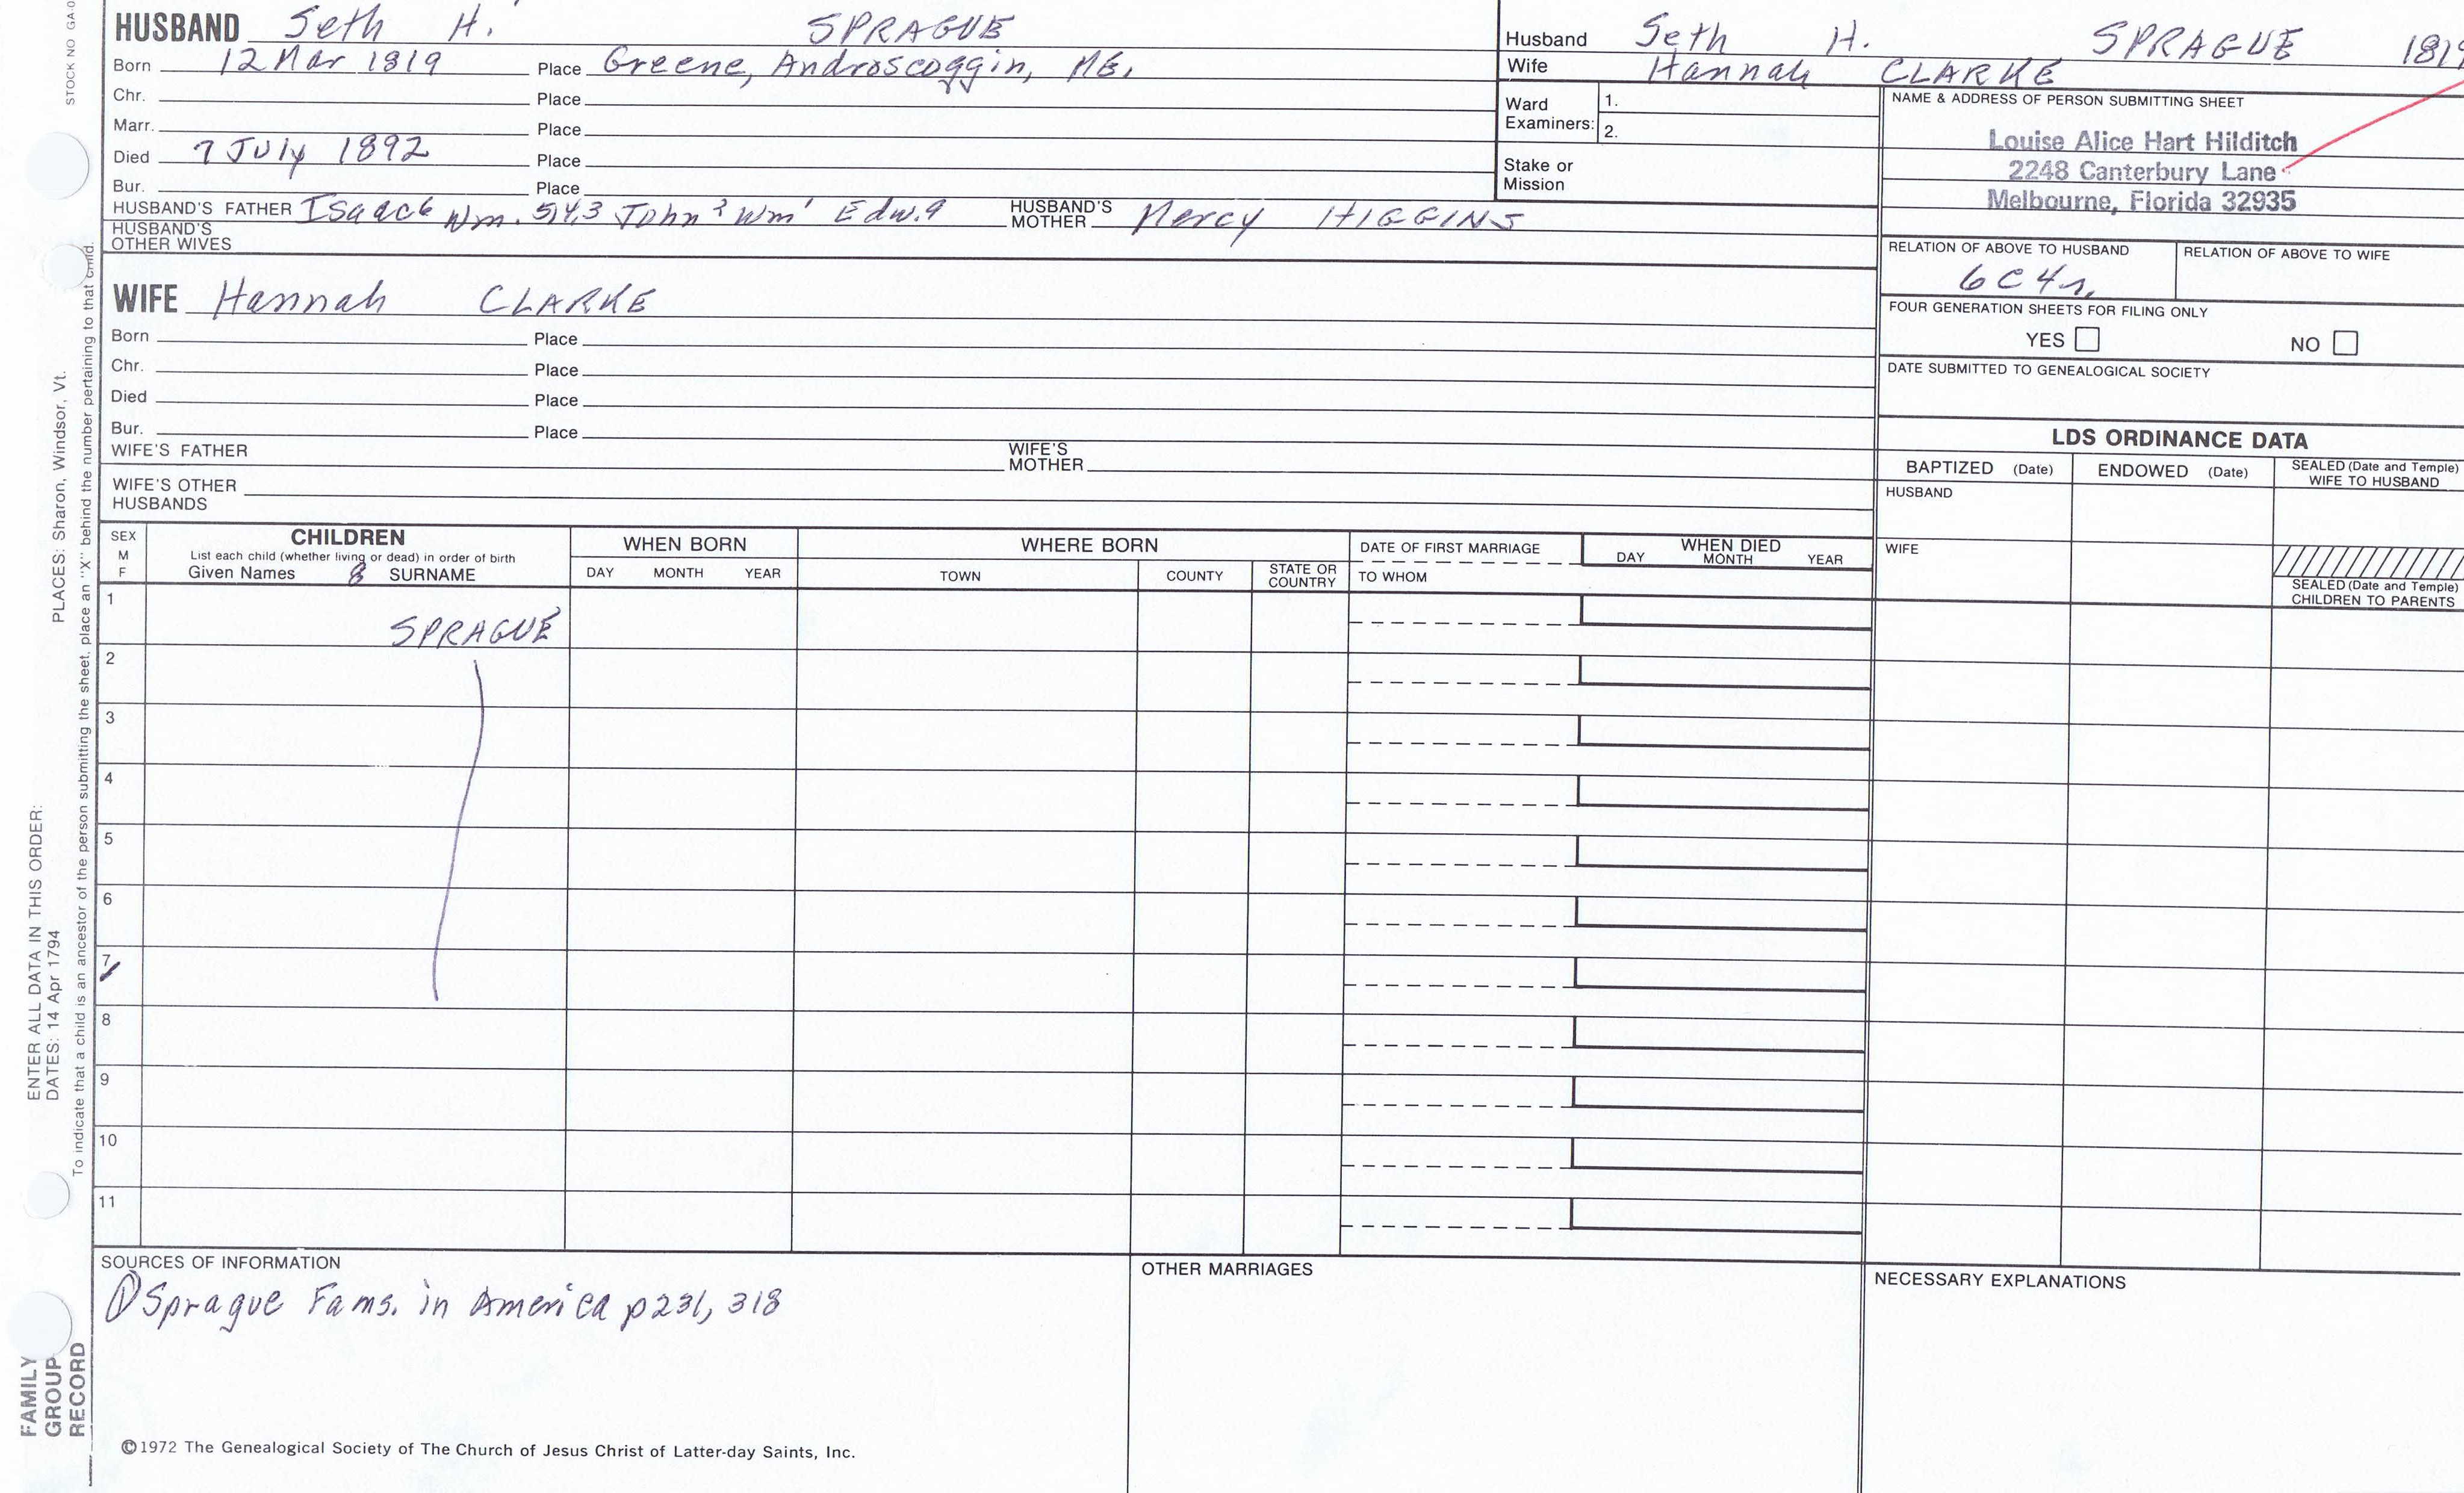 STOCK NO GA-0
HUSBAND Seth H. SPRAGUE
Born 12 Mar 1819 Place Greene, Androscoggin, ME.
Chr. Place
Marr. Place
Died 7 July 1892 Place
Bur. Place
HUSBAND'S FATHER Isaac6 Wm. 5,4,3 John2 Wm1 Edw.a HUSBAND'S MOTHER Mercy HIGGINS
HUSBAND'S OTHER WIVES
Husband Seth H. SPRAGUE 1819
Wife Hannah CLARKE
Ward Examiners: 1.
2.
Stake or Mission
NAME & ADDRESS OF PERSON SUBMITTING SHEET
Louise Alice Hart Hilditch
2248 Canterbury Lane
Melbourne, Florida 32935
RELATION OF ABOVE TO HUSBAND RELATION OF ABOVE TO WIFE
6C4r.
FOUR GENERATION SHEETS FOR FILING ONLY
YES NO
DATE SUBMITTED TO GENEALOGICAL SOCIETY
WIFE Hannah CLARKE
Born Place
Chr. Place
Died Place
Bur. Place
WIFE'S FATHER WIFE'S MOTHER
WIFE'S OTHER HUSBANDS
LDS ORDINANCE DATA
BAPTIZED (Date) ENDOWED (Date) SEALED (Date and Temple) WIFE TO HUSBAND
HUSBAND
WIFE
SEALED (Date and Temple) CHILDREN TO PARENTS
SEX M F
CHILDREN
List each child (whether living or dead) in order of birth
Given Names 8 SURNAME
WHEN BORN
DAY MONTH YEAR
WHERE BORN
TOWN COUNTY STATE OR COUNTRY
DATE OF FIRST MARRIAGE
TO WHOM
WHEN DIED
DAY MONTH YEAR
1 SPRAGUE
2
3
4
5
6
7
8
9
10
11
SOURCES OF INFORMATION
① Sprague Fams. in America p231, 318
OTHER MARRIAGES
NECESSARY EXPLANATIONS
©1972 The Genealogical Society of The Church of Jesus Christ of Latter-day Saints, Inc.
FAMILY GROUP RECORD
ENTER ALL DATA IN THIS ORDER:
DATES: 14 Apr 1794 PLACES: Sharon, Windsor, Vt.
To indicate that a child is an ancestor of the person submitting the sheet, place an "X" behind the number pertaining to that child.